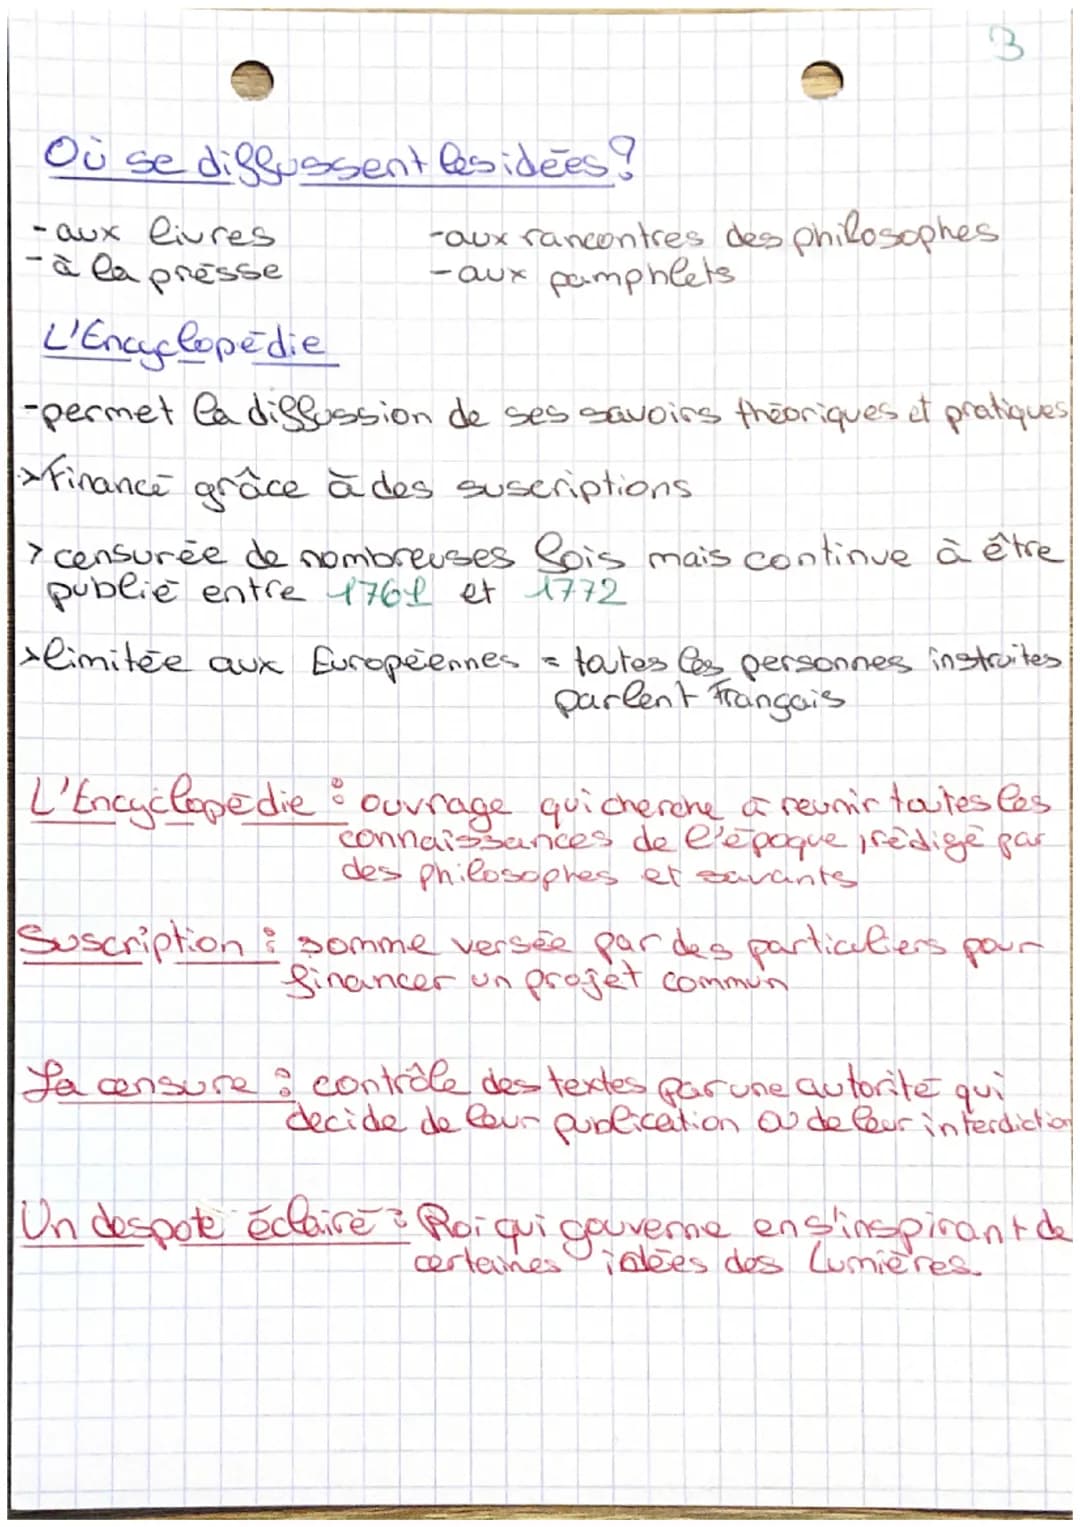 3
Où se diffussent les idées?
-aux livres -aux rancontres des philosophes
-à la presse -aux pamphlets
L'Encyclopédie
-permet la diffussion de ses savoirs théoriques et pratiques
>Financé grâce à des suscriptions
> censurée de nombreuses fois mais continue à être
publié entre 1761 et 1772
>limitée aux Européennes = toutes les personnes instruites
parlent Français
L'Encyclopédie : ouvrage qui cherche à reunir toutes les
connaissances de l'époque, rédigé par
des philosophes et savants
Suscription : somme versée par des particuliers pour
financer un projet commun
La censure : contrôle des textes par une autorité qui
decide de leur publication ou de leur interdiction
Un despote éclairé : Roi qui gouverne en s'inspirant de
certaines idées des Lumières.